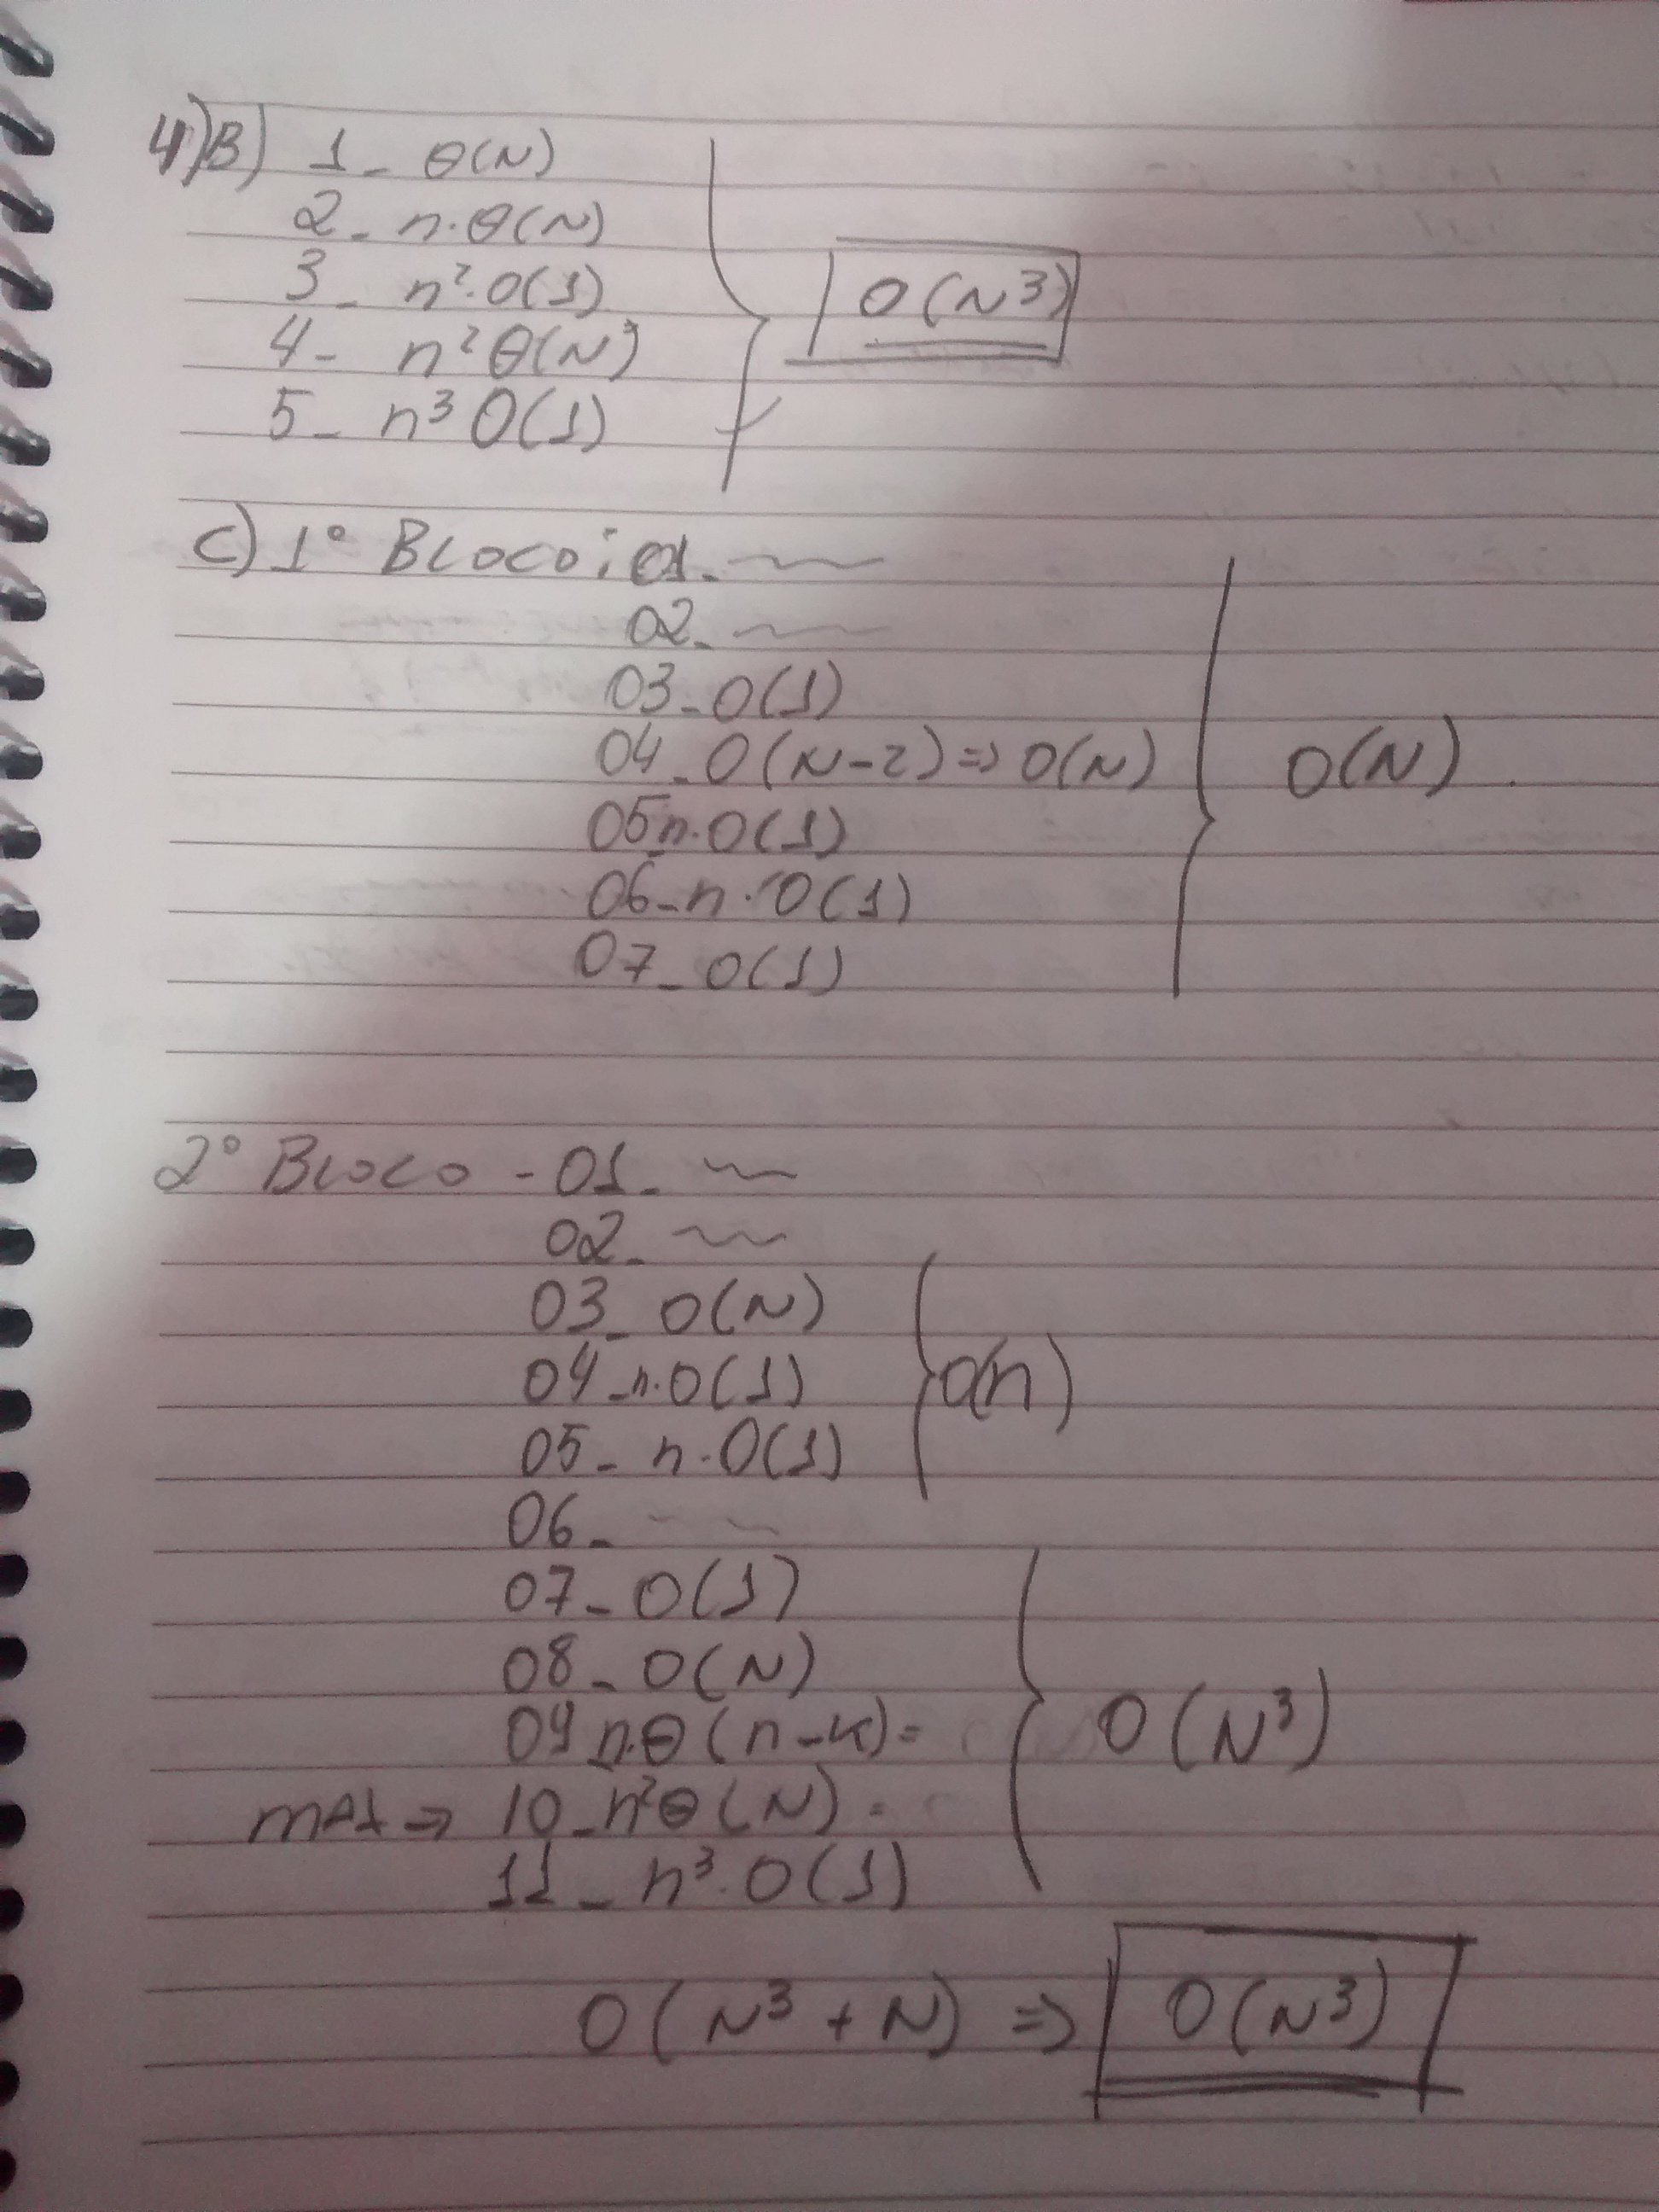 4)B) 1_ θ(N)
2_ n·θ(N)
3_ n²·O(1)
4_ n²θ(N)
5_ n³O(1)
O(N³)
C) 1° BLOCO: 01_
02_
03_O(1)
04_O(N-2)=>O(N)
05_n·O(1)
06_n·O(1)
07_O(1)
O(N)
2° BLOCO - 01_
02_
03_O(N)
04_n·O(1)
05_n·O(1)
O(n)
06_
07_O(1)
08_O(N)
09_n·θ(n-k)=
=> 10_n²θ(N)=
11_n³·O(1)
O(N³)
O(N³+N) => O(N³)